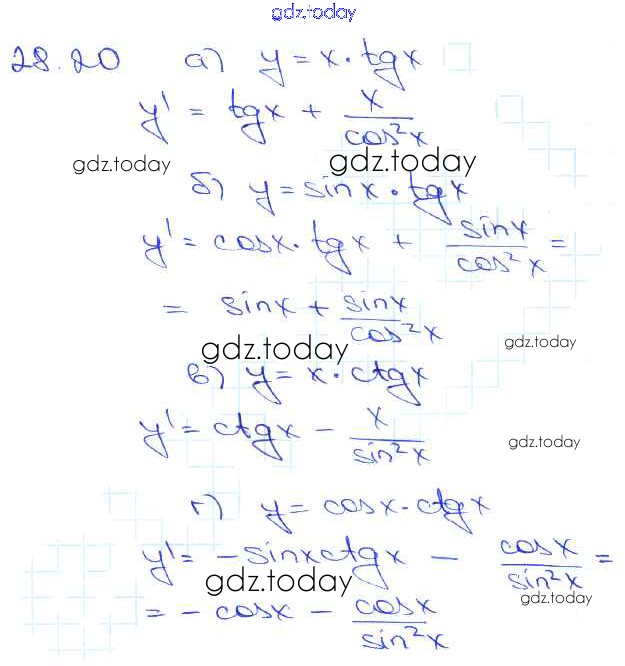 gdz.today
28.20 а) y = x · tgx
y' = tgx + x/cos²x
gdz.today
gdz.today
б) y = sinx · tgx
y' = cosx · tgx + sinx/cos²x =
= sinx + sinx/cos²x
gdz.today
gdz.today
в) y = x · ctgx
y' = ctgx - x/sin²x
gdz.today
г) y = cosx · ctgx
y' = -sinxctgx - cosx/sin²x =
gdz.today
gdz.today
= -cosx - cosx/sin²x